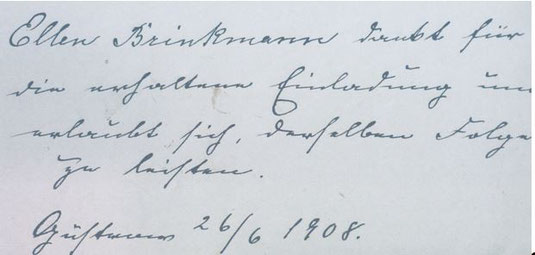 Ellen Brinkmann dankt für
die erhaltene Einladung un
erlaubt sich, derselben Folge
zu leisten.
Güstrow 26/6 1908.